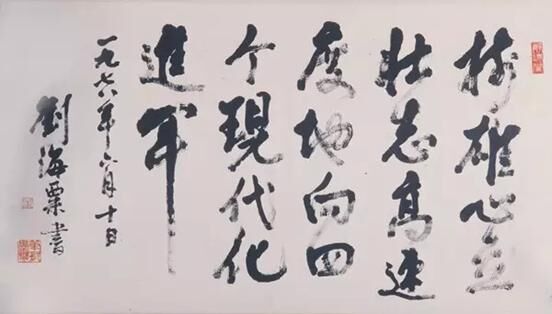 树雄心立
壮志高速
度地向四
个現代化
進军
一九七八年六月十日
劉海粟書